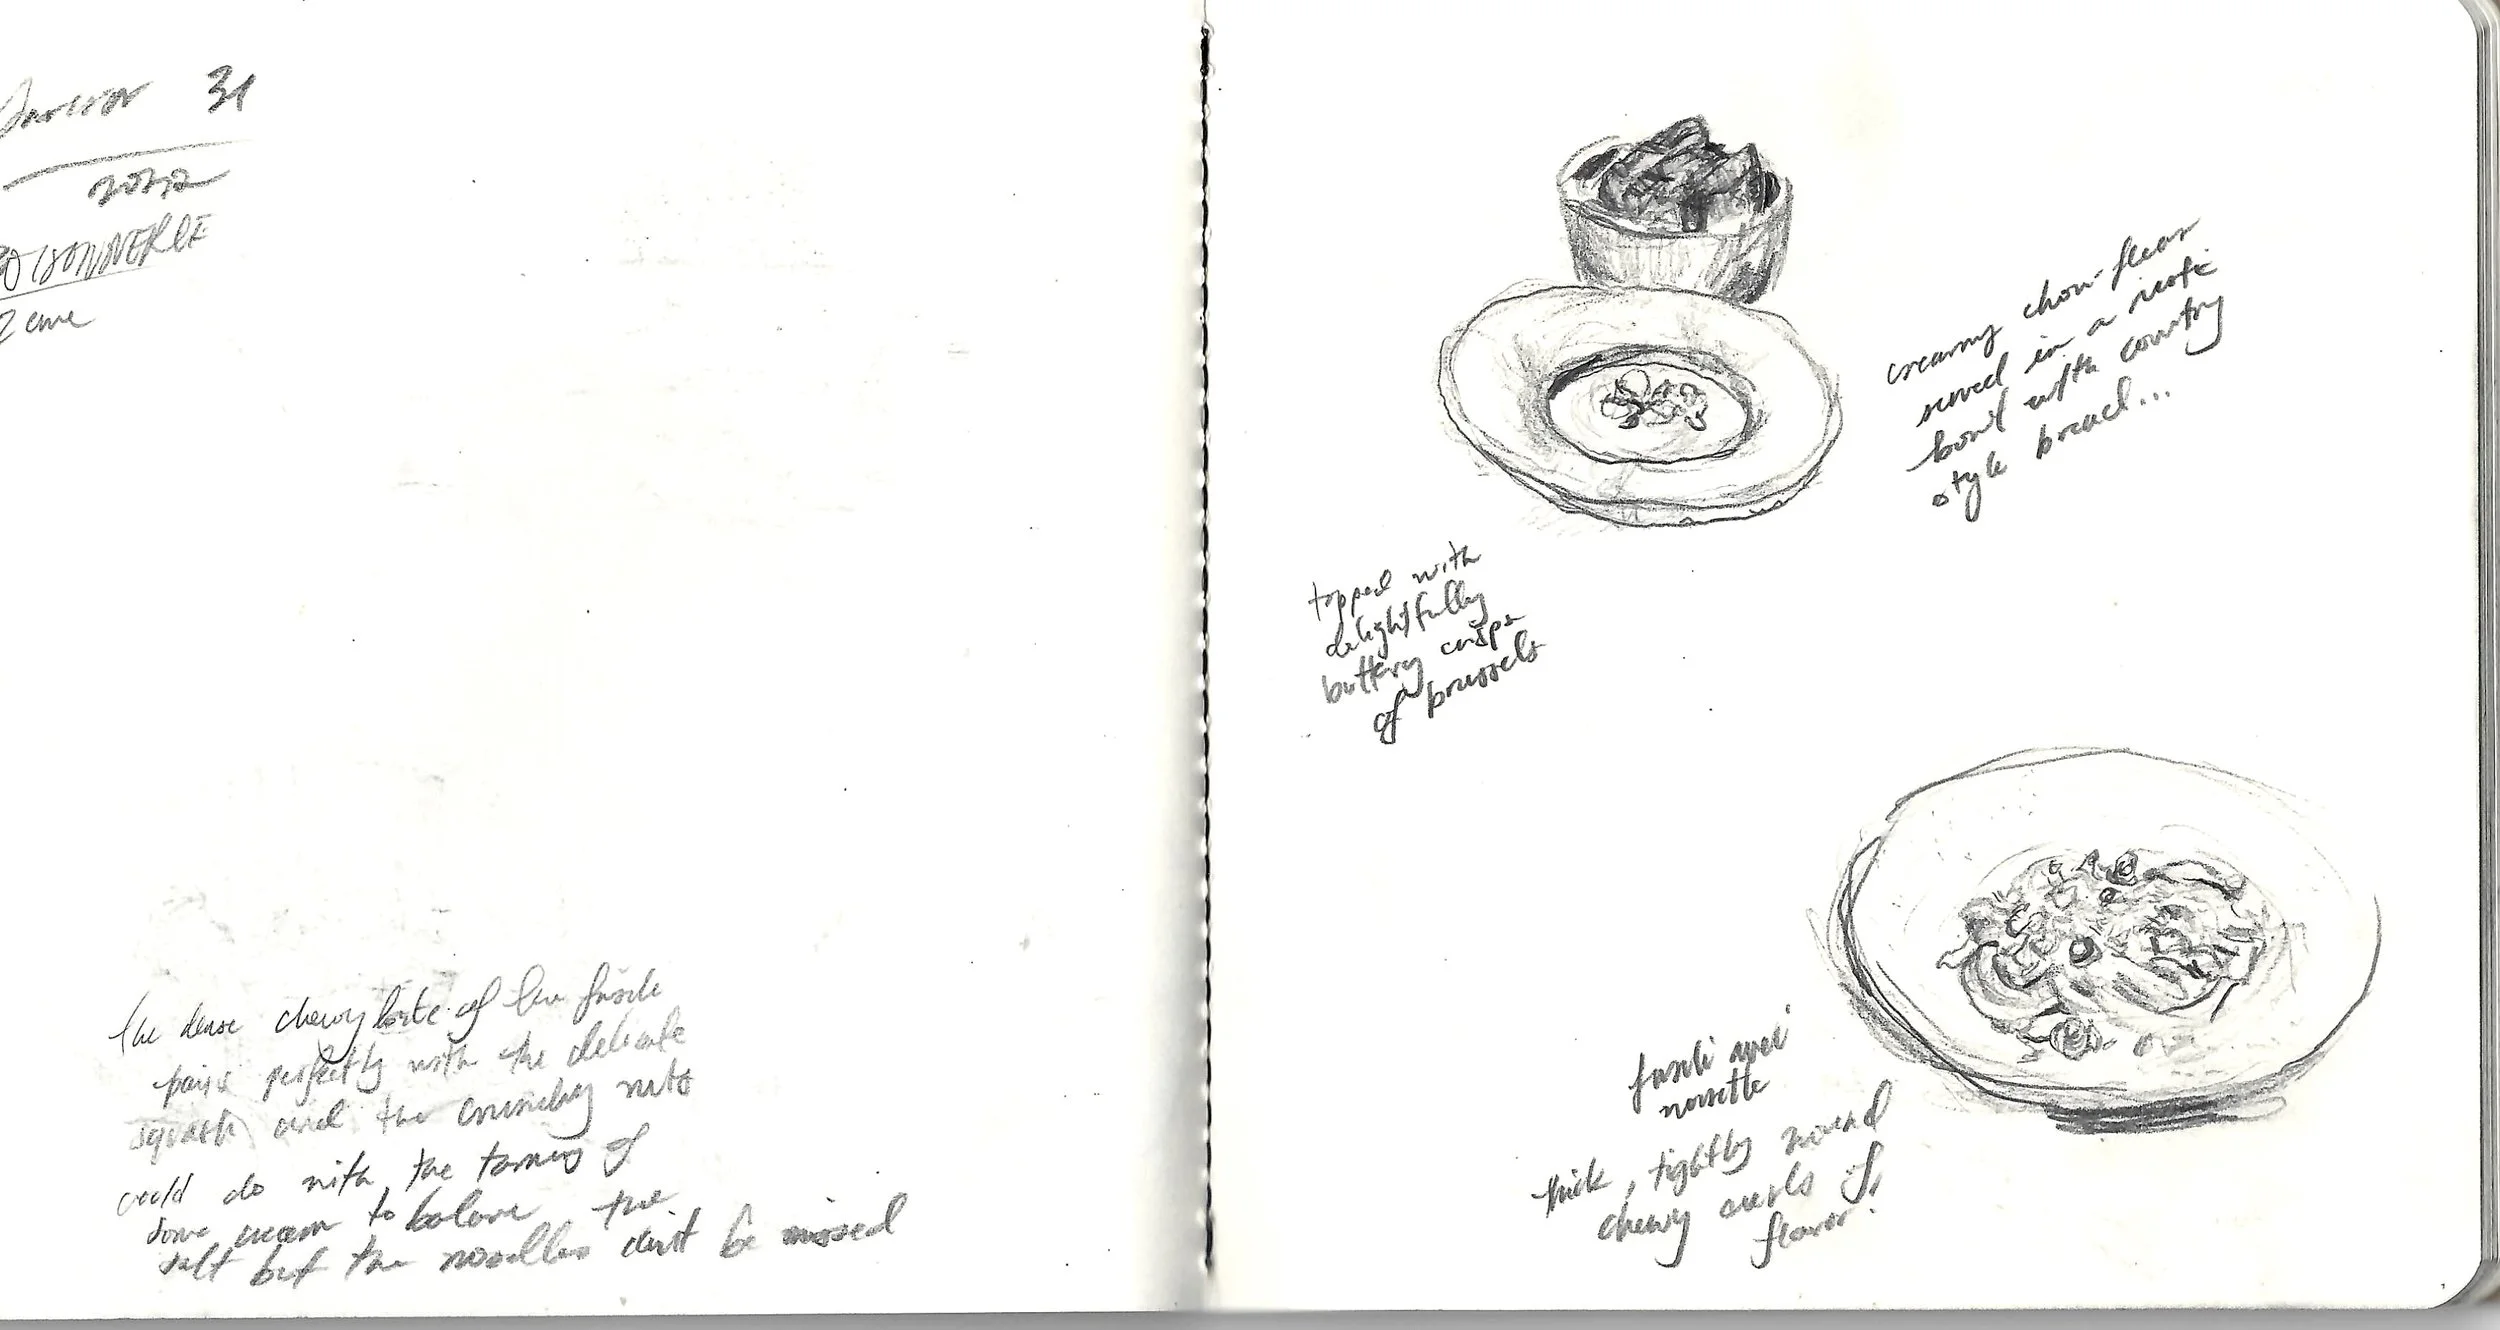 31
2022
2eme
the dense chewy bite of the fusili
pairs perfectly with the delicate
squash and the crunchy nuts
could do with the of
some cream to balance the
salt but the noodles can't be missed
creamy chou-fleur
served in a
bowl with country
style bread...
topped with
delightfully
buttery crisps
of brussels
fusili
noisette
thick, tightly wound
chewy curls of
flavor.